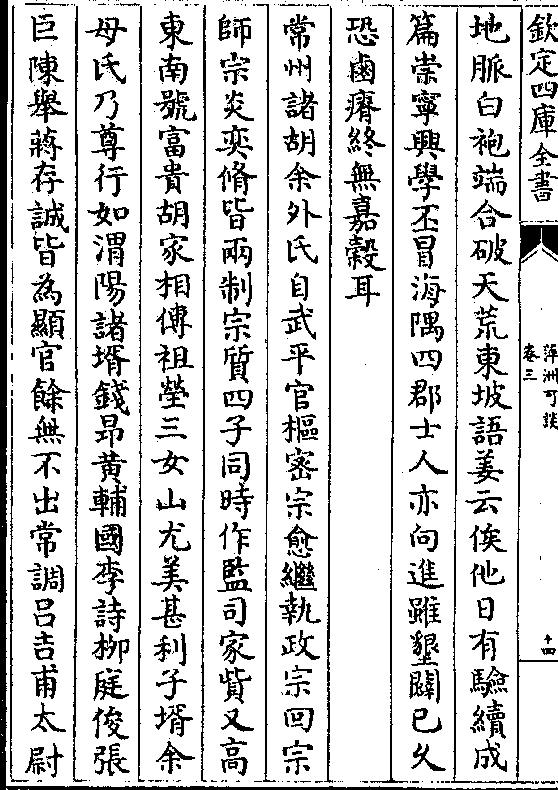 欽定四庫全書
萍洲可談
卷三
十四
地脈白袍端合破天荒東坡語姜云俟他日有驗續成
篇崇寧興學丕冒海隅四郡士人亦向進雖墾闢已久
恐鹵瘠終無嘉穀耳
常州諸胡余外氏自武平官樞密宗愈繼執政宗回宗
師宗炎奕脩皆兩制宗質四子同時作監司家貲又高
東南號富貴胡家相傳祖塋三女山尤美甚利子壻余
母氏乃尊行如渭陽諸壻錢昻黃輔國李詩栁庭俊張
巨陳舉蔣存誠皆為顯官餘無不出常調吕吉甫太尉